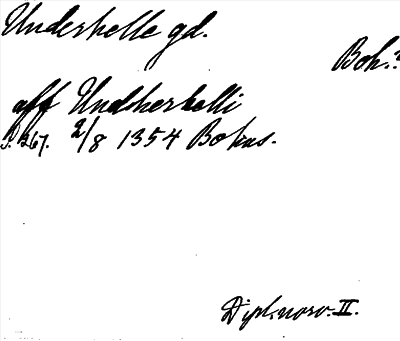 Underhelle gd.
Boh.?
aff Undherhelli
S. 267. 2/8 1354 Bohus.
Dipl. norv. II.